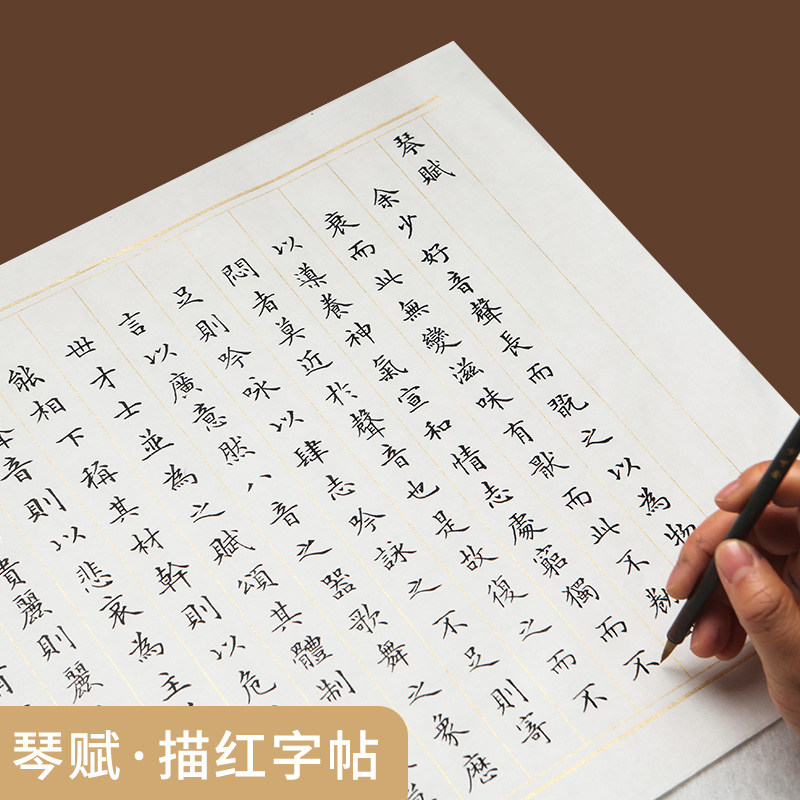 琴賦
余少好音聲長而翫之以為物
衰而此無變滋味有猒而此不勌
以導養神氣宣和情志處窮獨而不
悶者莫近於聲音也是故復之而不
足則吟咏以肆志吟詠之不足則寄
言以廣意然八音之器歌舞之象歷
世才士並為之賦頌其體制
能相下稱其材幹則以危
音則以悲哀為主
貴麗則麗
琴赋·描红字帖